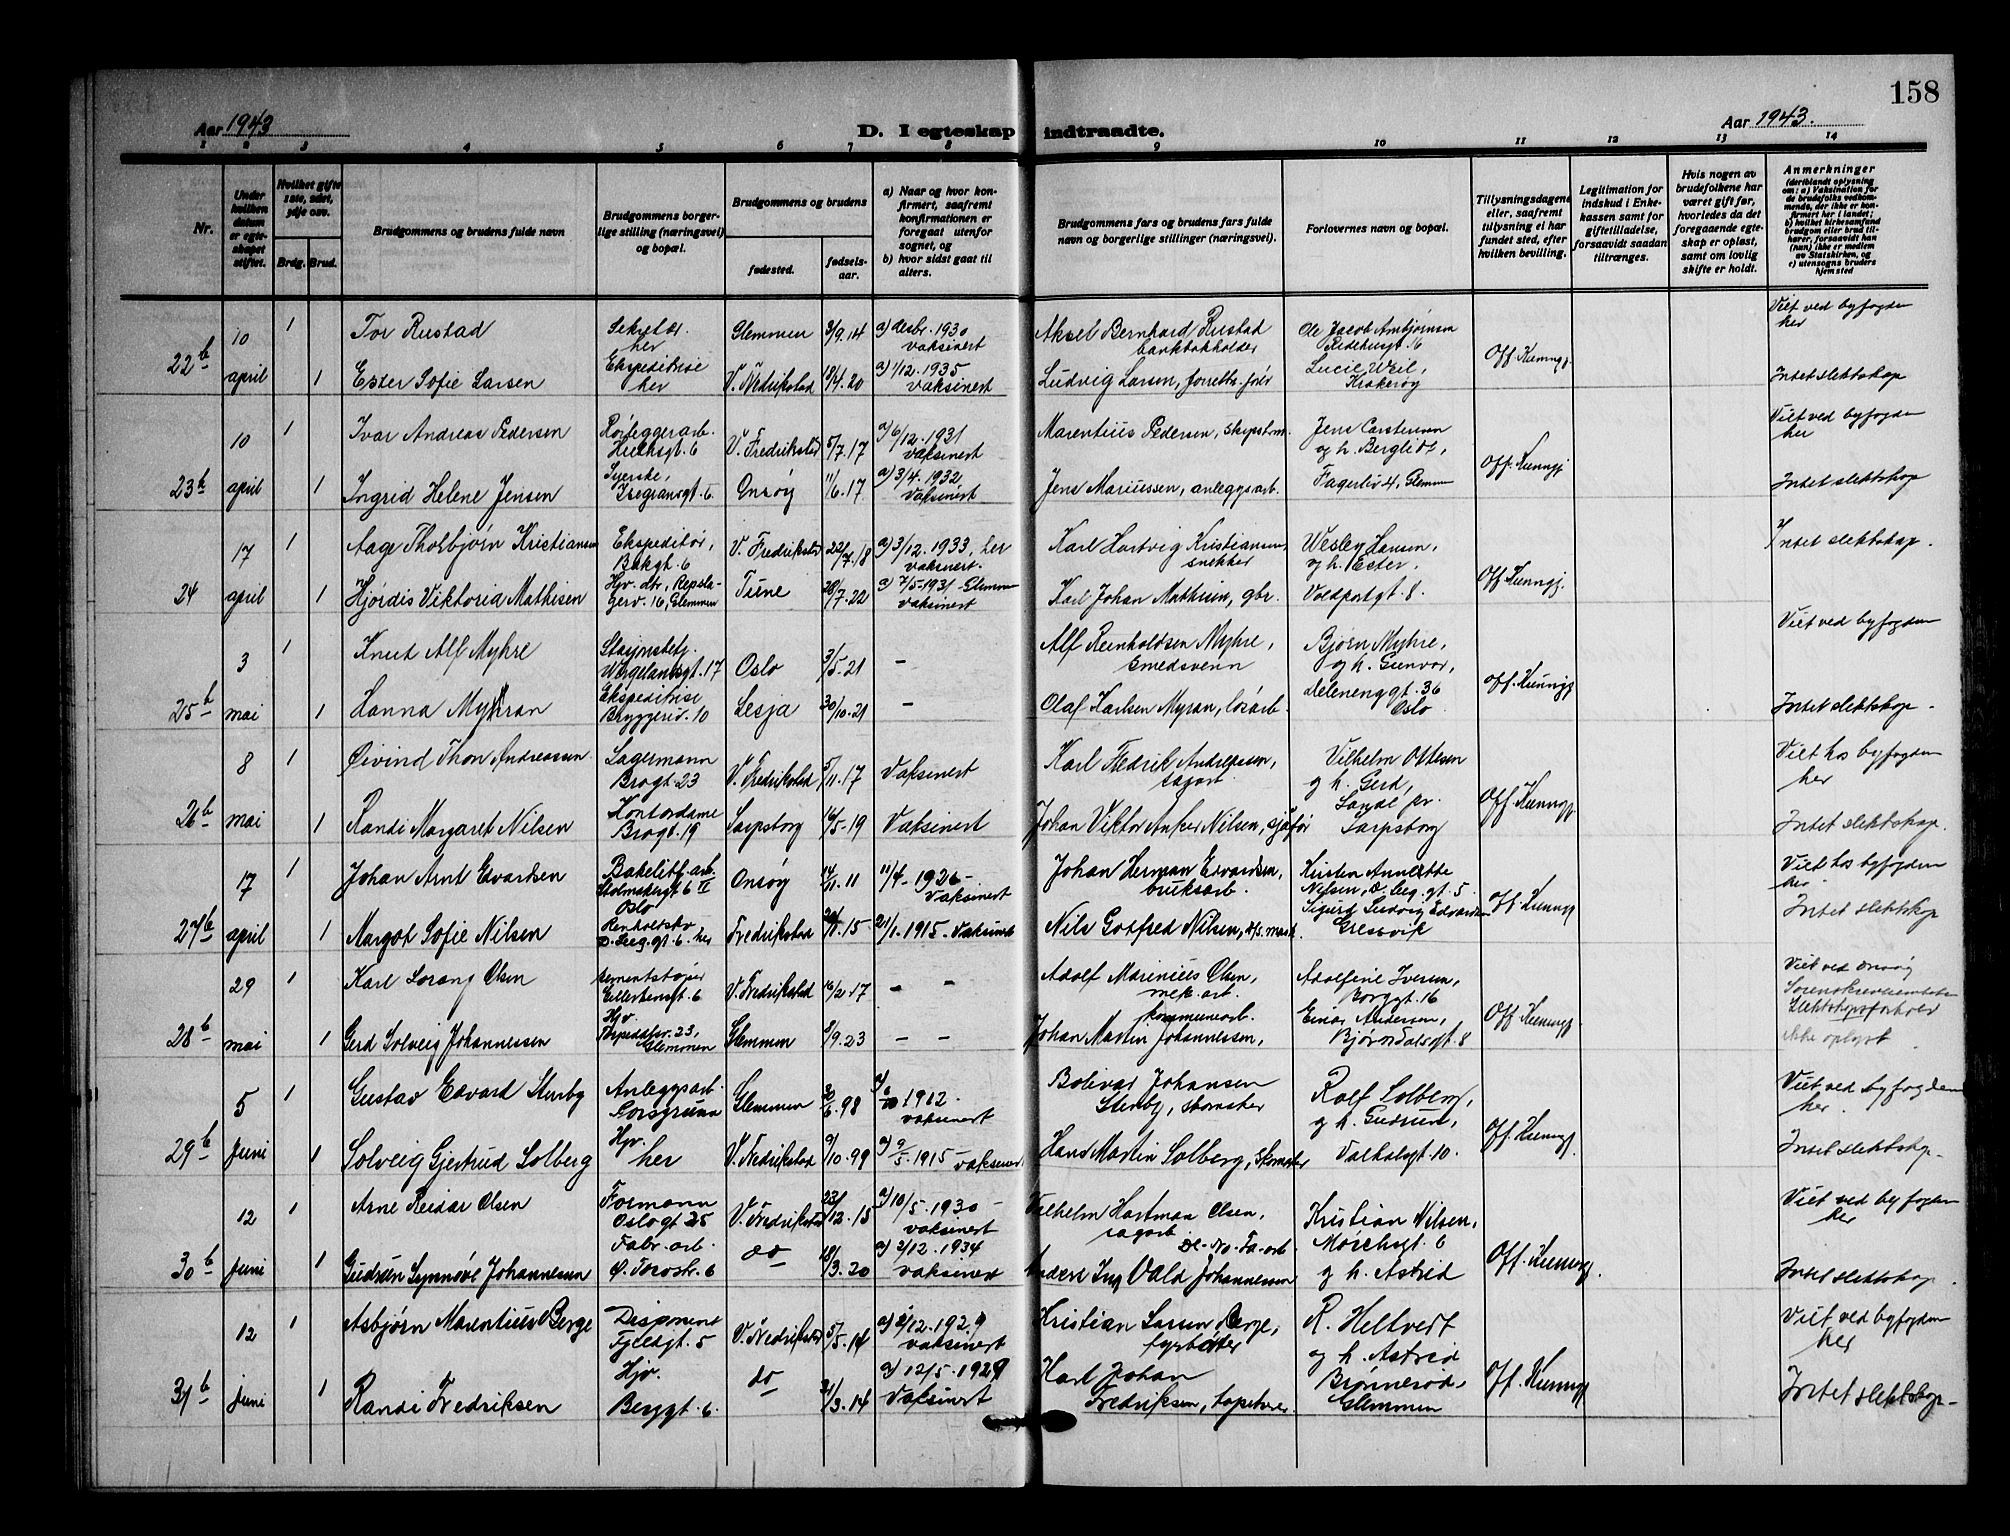 158
Aar 1943
D. I egteskap indtraadte.
Aar 1943.
1 2 3 4 5 6 7 8 9 10 11 12 13 14
Nr.
Under hvilken datum er egteskapet stiftet.
Hvilket gifte 1ste, 2det, 3dje osv.
Brdg. Brud.
Brudgommens og brudens fulde navn
Brudgommens borgerlige stilling (næringsvei) og bopæl.
Brudgommens og brudens
fødested.
fødselsaar.
a) Naar og hvor konfirmert, saafremt konfirmationen er foregaat utenfor sognet, og
b) hvor sidst gaat til alters.
Brudgommens fars og brudens fars fulde navn og borgerlige stillinger (næringsvei).
Forlovernes navn og bopæl.
Tillysningsdagene eller, saafremt tilysning ei har fundet sted, efter hvilken bevilling.
Legitimation for indskud i Enkekassen samt for giftetilladelse, forsaavidt saadan tiltrænges.
Hvis nogen av brudefolkene har været gift før, hvorledes da det foregaaende egteskap er opløst, samt om lovlig skifte er holdt.
Anmerkninger
(deriblandt oplysning om: a) Vaksination for de brudefolks vedkommende, der ikke er konfirmert her i landet; b) hvilket kirkesamfund brudgom eller brud tilhører, forsaavidt han (hun) ikke er medlem av Statskirken, og c) utensogns bruders hjemsted
22b 10 april
1 Tor Rustad Sekretær her Glemmen 3/9.14 a) desbr. 1930 vaksinert Aksel Bernhard Rustad bankbokholder Ole Jacob Ambjørnsen 16 Off. Kunngj. Viet ved byfogden her
1 Ester Sofie Larsen Ekspeditrise her V. Fredrikstad 19/4.20 a) 1/12.1935 vaksinert Ludvig Larsen, Lucie Weil, Kråkerøy Intet slektskap
23b 10 april
1 Ivar Andreas Pedersen Rørleggerarb. V. Fredrikstad 5/7.17 a) 6/12.1931 vaksinert Marentius Pedersen, skipstøm. Jens Carstensen og h. Berglidt, Off. Kunngj Viet ved byfogden her
1 Ingrid Helene Jensen Syerske, Isegransgt. 6 Onsøy 11/6.17 a) 3/4.1932 vaksinert Jens Mariussen, anleggsarb. Fagerliv 4, Glemm Intet slektskap
24 17 april
1 Aage Thorbjørn Kristiansen Ekspeditør, Bakgt. 6 V. Fredrikstad 22/7.18 a) 3/12.1933, her vaksinert. Karl Hartvig Kristiansen, snekker Wesley Hansen, og h. Ester. Off Kunngj. Intet slektskap.
1 Hjørdis Viktoria Mathisen Hjv. dtr, Repslagerv. 16, Glemmen Tune 28/7.22 a) 7/5-1931 - Glemmen vaksinert Karl Johan Mathisen, gbr. Voldportgt. 8.
25b 3 mai
1 Knut Alf Myhre Stasjonsbetj. Wergelandsgt. 17 Oslo 3/5.21 - Alf Reinholdsen Myhre, smedsvenn Bjørn Myhre, og h. Gunvor, Off. Kunngj Viet ved byfogden
1 Hanna Myhran Ekspeditrise Bryggeriv. 10 Lesja 30/10.21 - Olaf Karlsen Myran, løsarb. Helenenggt. 36 Oslo Intet slektskap -
26b 8 mai
1 Øivind Thon Andreassen Lagermann Brogt. 23 V. Fredrikstad 5/11.17 Vaksinert Karl Fredrik Andreassen, sagarb. Vilhelm Ottesen og h. Gerd, Off. Kunngj Viet hos byfogden her
1 Randi Margaret Nilsen Kontordame Brogt. 19 Sarpsborg 16/5-19 Vaksinert Johan Viktor Anker Nilsen, sjåfør Sande pr. Sarpsborg Intet slektskap.
27b 17 april
1 Johan Arnt Edvardsen Bakelitt-arb. Stolmakergt 6 II Oslo Onsøy 14/11.11 11/4-1926- Vaksinert Johan Herman Edvardsen, bruksarb. Kristen Annette Nilsen, D. Leg. gt. 5 Off Kunngj Viet hos byfogden her.
1 Margot Sofie Nilsen Renholdsbv D. Leeg. gt. 6. her Fredrikstad .15 1915- Vaksinert Nils Gotfred Nilsen, d/s. mask. Sigurd Ludvig Edvardsen Gressvik Intet slektskap
28b 29 mai
1 Karl Sorang Olsen sementstøper Gillerbensgt. 6 V. Fredrikstad 16/2.17 - - Adolf Marinius Olsen, mek. arb. Adolfine Iversen, Borggt. 16 Off Kunngj Viet ved Onsøy Sorenskriverembete Slektskapsforhold ikke oplyst.
1 Gerd Solveig Johannessen Hjv. 23, Glemmen Glemmen 8/9.23 - - kommunearb. Johan Martin Johannessen, Einar Andersen, Bjørndalsgt. 8
29b 5 Juni
1 Gustav Edvard Stenby Anleggsarb. Porsgrunn Glemmen 30/6.98 a) 6/10 1912. vaksinert Bolivar Johansen Stenby, skomaker Rolf Solberg, og h. Gudrun, Off. Kunngj. Viet ved byfogden her.
1 Solveig Gjertrud Solberg Hjv. her V. Fredrikstad 9/10.99 a) 9/5.1915 - vaksinert Hans Martin Solberg, skomaker Valhalsgt 10. Intet slektskap -
30b 12 Juni
1 Arne Reidar Olsen Formann Oslogt 25 V. Fredrikstad 23/12.15 a) 10/5.1930 - vaksinert Vilhelm Hartman Olsen, sagarb Kristian Nilsen, Mørchsgt. 6 Off. Kunngj. Viet ved byfogden her
1 Gudrun Synnøve Johannessen Fabr. arb. Ø. Torosk. 6 do 18/3.20 a) 2/12.1934 vaksinert De-No-Fa-arb. Anders Ing Vald Johannessen og h. Astrid Intet slektskap
31b 12 juni
1 Asbjørn Marentius Berge Disponent Fjeldgt. 5 V. Fredrikstad 5/5.14 a) 2/12.1929 vaksinert Kristian Larsen Berge, fyrbøter R. Heltvedt og h. Astrid Off. Kunngj Viet ved byfogden her
1 Randi Fredriksen Hjv. Berggt. 6. do 21/3.14 a) 12/5.1929 Vaksinert Karl Johan Fredriksen, tapetserer Brønnerød, Glemmen Intet slektskap -